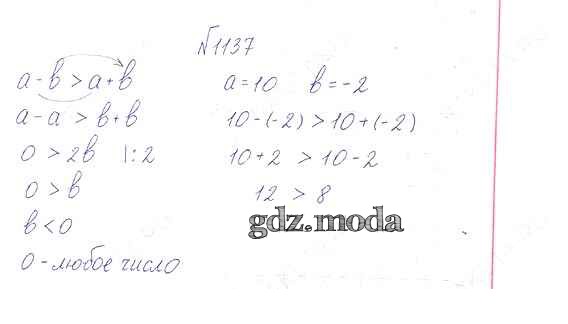 №1137
a - b > a + b
a - a > b + b
0 > 2b |:2
0 > b
b < 0
0 - любое число
a = 10 b = -2
10 - (-2) > 10 + (-2)
10 + 2 > 10 - 2
12 > 8
gdz.moda